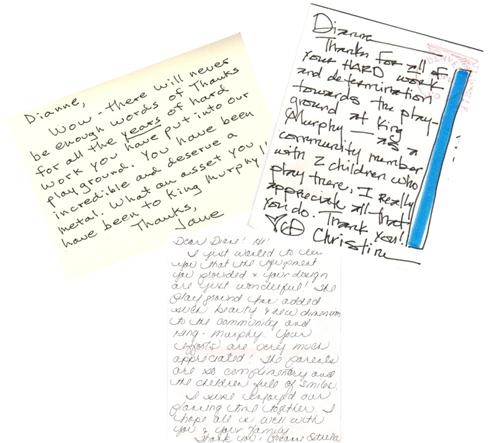 Dianne,
Wow - there will never
be enough words of Thanks
for all the years of hard
work you have put into our
playground. You have been
incredible and deserve a
metal. What an asset you
have been to King Murphy!!
Thanks,
Jane
Dianne
Thanks for all of
your HARD work
and determination
towards the play-
ground at King
Murphy — as a
community member
with 2 children who
play there, I really
appreciate all that
you do. Thank you!
Christine
Dear Diane! Hi!
I just wanted to
you that the equipment
you provided & your design
are just wonderful! The
playground has added
such beauty & new dimension
to the community and
King-Murphy. Your
efforts are very much
appreciated! The parents
are so complimentary and
the children full of smiles.
I sure enjoyed our
planning time together. I
hope all is well with
you & your family
Thank you!